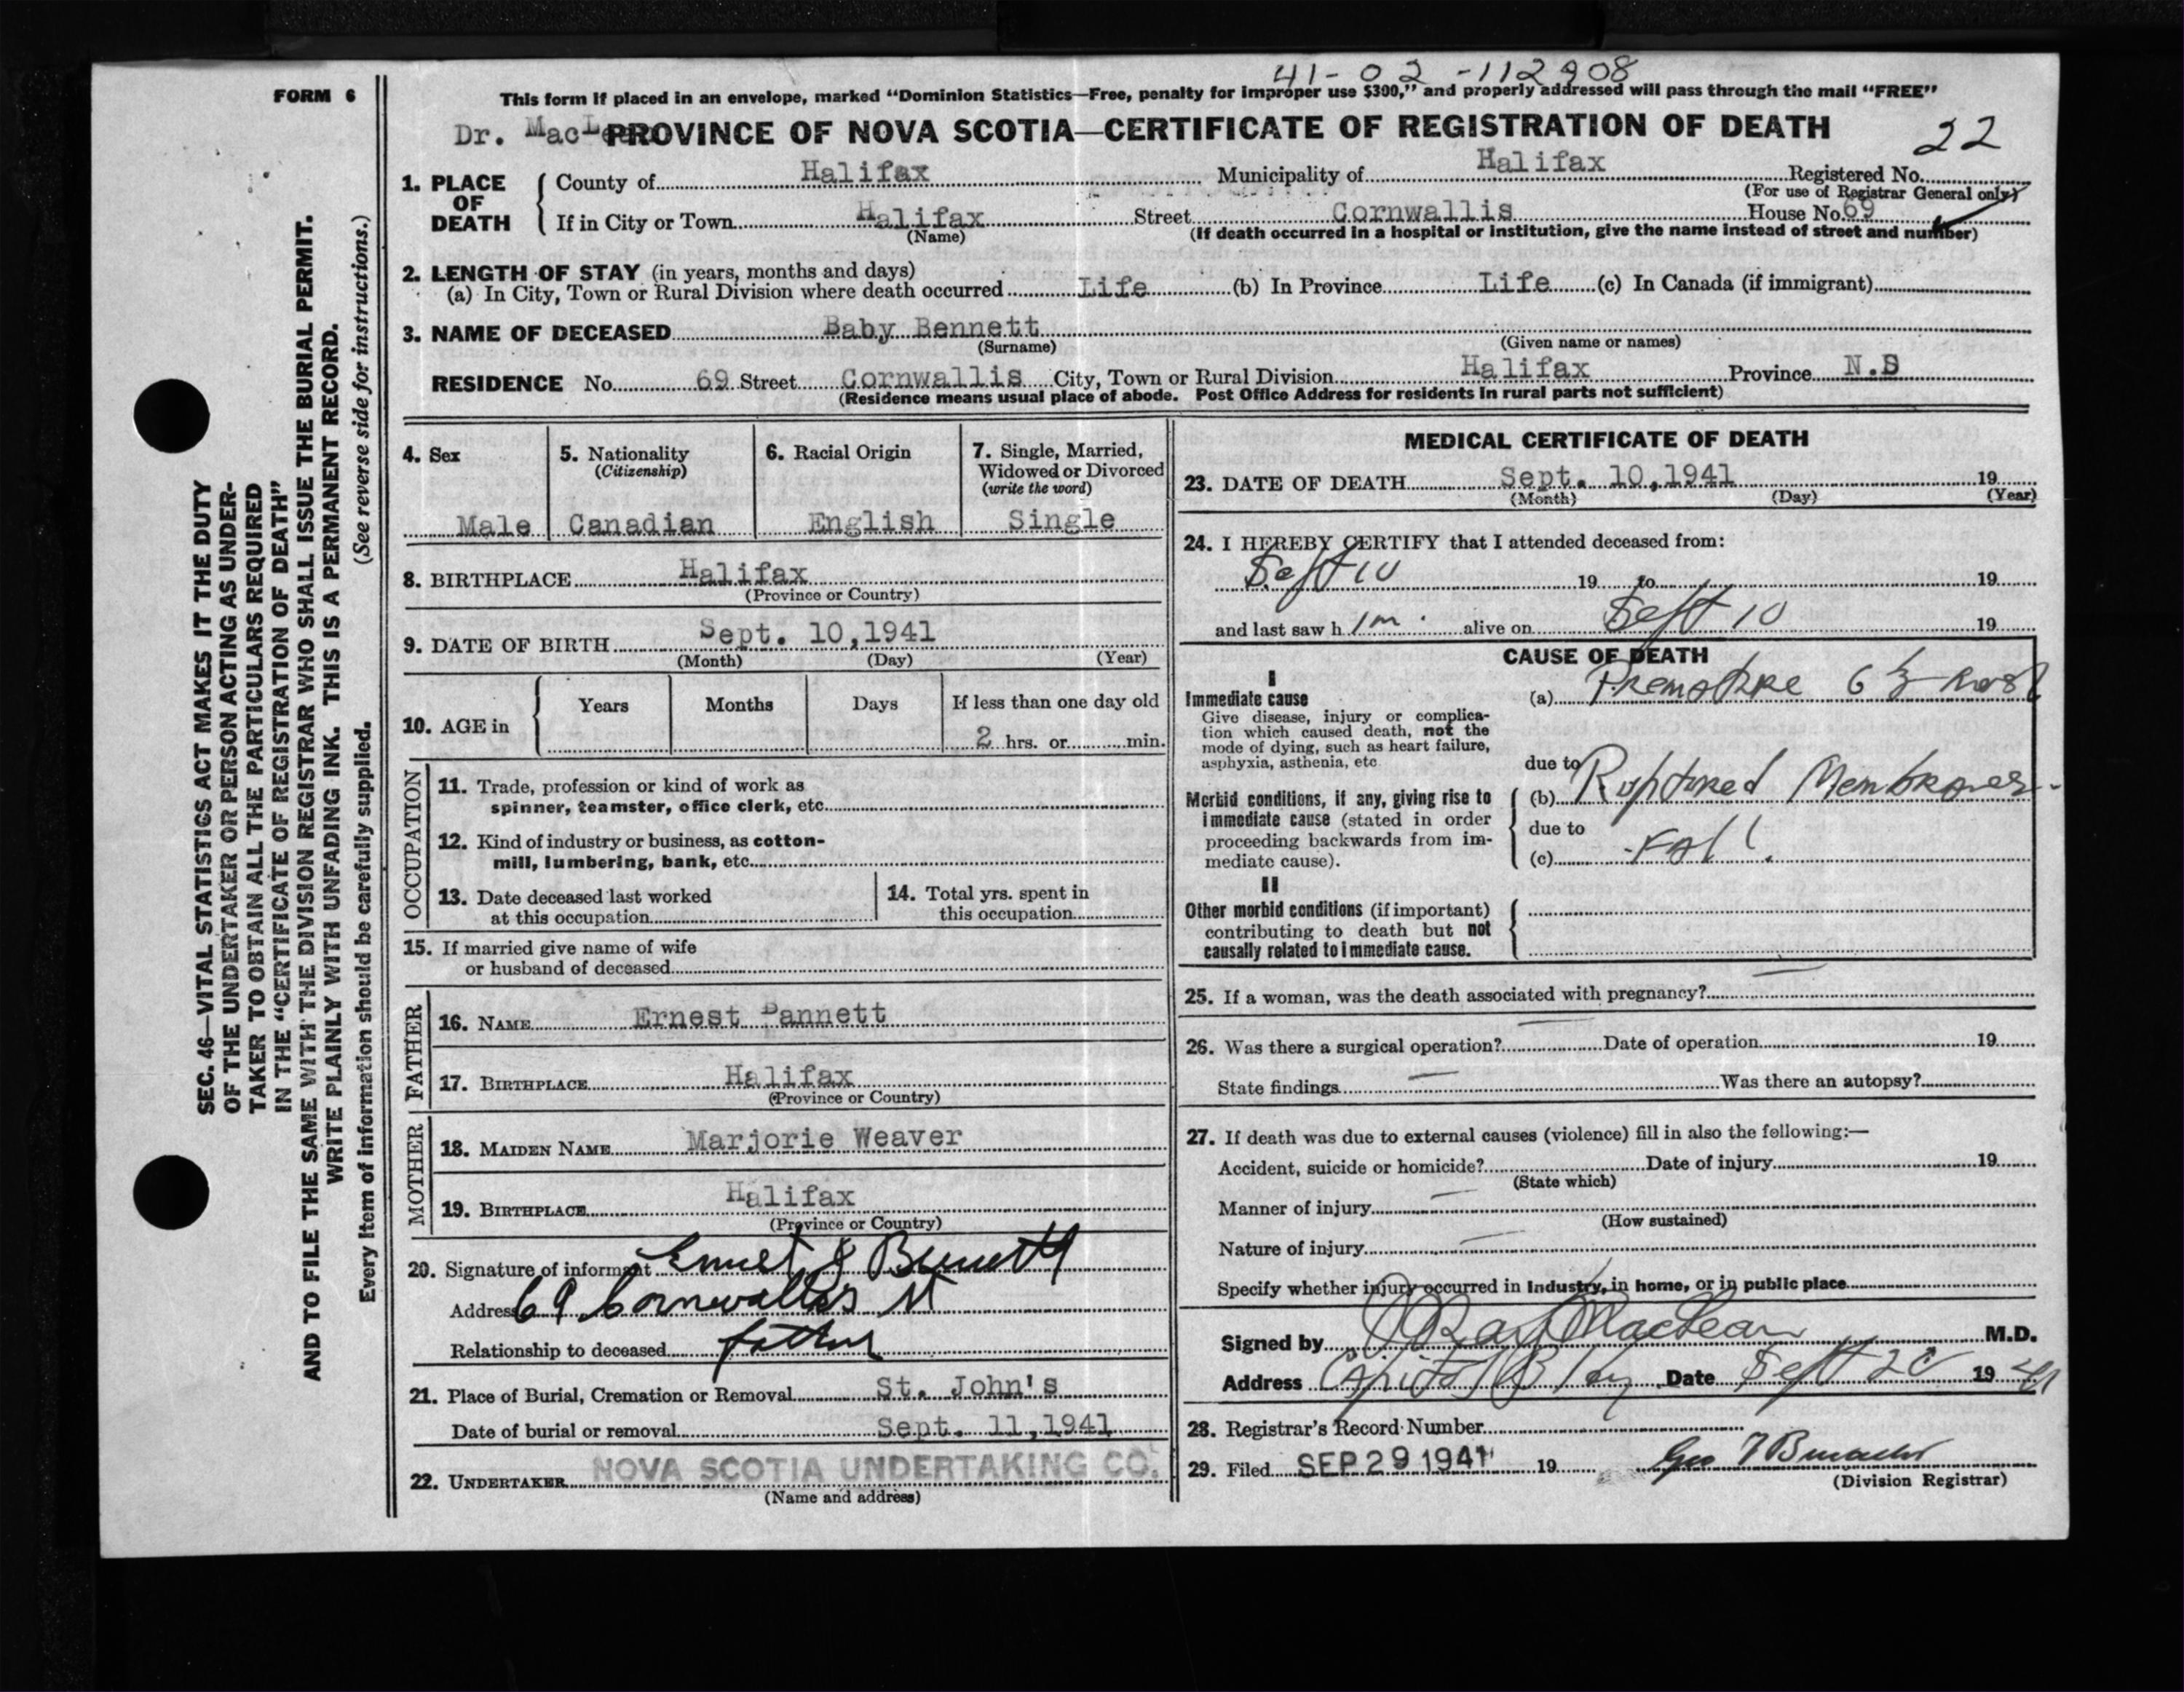 41-02-112908
FORM 6
This form if placed in an envelope, marked "Dominion Statistics—Free, penalty for improper use $300," and properly addressed will pass through the mail "FREE"
Dr. MacLean PROVINCE OF NOVA SCOTIA—CERTIFICATE OF REGISTRATION OF DEATH
22
1. PLACE OF DEATH
County of Halifax Municipality of Halifax Registered No.
(For use of Registrar General only)
If in City or Town Halifax Street Cornwallis House No. 69
(Name) (If death occurred in a hospital or institution, give the name instead of street and number)
2. LENGTH OF STAY (in years, months and days)
(a) In City, Town or Rural Division where death occurred Life (b) In Province Life (c) In Canada (if immigrant)
3. NAME OF DECEASED Baby Bennett
(Surname) (Given name or names)
RESIDENCE No. 69 Street Cornwallis City, Town or Rural Division Halifax Province N.S
(Residence means usual place of abode. Post Office Address for residents in rural parts not sufficient)
4. Sex Male
5. Nationality (Citizenship) Canadian
6. Racial Origin English
7. Single, Married, Widowed or Divorced (write the word) Single
8. BIRTHPLACE Halifax
(Province or Country)
9. DATE OF BIRTH Sept. 10,1941
(Month) (Day) (Year)
10. AGE in Years Months Days If less than one day old
2 hrs. or min.
OCCUPATION
11. Trade, profession or kind of work as
spinner, teamster, office clerk, etc.
12. Kind of industry or business, as cotton-
mill, lumbering, bank, etc.
13. Date deceased last worked
at this occupation
14. Total yrs. spent in
this occupation
15. If married give name of wife
or husband of deceased
FATHER
16. NAME Ernest Bannett
17. BIRTHPLACE Halifax
(Province or Country)
MOTHER
18. MAIDEN NAME Marjorie Weaver
19. BIRTHPLACE Halifax
(Province or Country)
20. Signature of informant Ernest J Bennett
Address 69 Cornwallis St
Relationship to deceased father
21. Place of Burial, Cremation or Removal St. John's
Date of burial or removal Sept. 11,1941
22. UNDERTAKER NOVA SCOTIA UNDERTAKING CO.
(Name and address)
MEDICAL CERTIFICATE OF DEATH
23. DATE OF DEATH Sept. 10,1941 19
(Month) (Day) (Year)
24. I HEREBY CERTIFY that I attended deceased from:
Sept 10 19 to 19
and last saw h im alive on Sept 10 19
CAUSE OF DEATH
I
Immediate cause
Give disease, injury or complica-
tion which caused death, not the
mode of dying, such as heart failure,
asphyxia, asthenia, etc
(a) Premature 6½ mos
due to
Morbid conditions, if any, giving rise to
immediate cause (stated in order
proceeding backwards from im-
mediate cause).
(b) Ruptured Membranes
due to
(c) Fall.
II
Other morbid conditions (if important)
contributing to death but not
causally related to immediate cause.
25. If a woman, was the death associated with pregnancy? —
26. Was there a surgical operation? — Date of operation 19
State findings — Was there an autopsy?
27. If death was due to external causes (violence) fill in also the following:—
Accident, suicide or homicide? Date of injury 19
(State which)
Manner of injury —
(How sustained)
Nature of injury —
Specify whether injury occurred in Industry, in home, or in public place
Signed by Ray MacLean M.D.
Address Capitol Bldg Date Sept 20 19 41
28. Registrar's Record Number
29. Filed SEP 29 1941 19
(Division Registrar)
SEC. 46—VITAL STATISTICS ACT MAKES IT THE DUTY
OF THE UNDERTAKER OR PERSON ACTING AS UNDER-
TAKER TO OBTAIN ALL THE PARTICULARS REQUIRED
IN THE "CERTIFICATE OF REGISTRATION OF DEATH"
AND TO FILE THE SAME WITH THE DIVISION REGISTRAR WHO SHALL ISSUE THE BURIAL PERMIT.
WRITE PLAINLY WITH UNFADING INK. THIS IS A PERMANENT RECORD.
Every item of information should be carefully supplied. (See reverse side for instructions.)